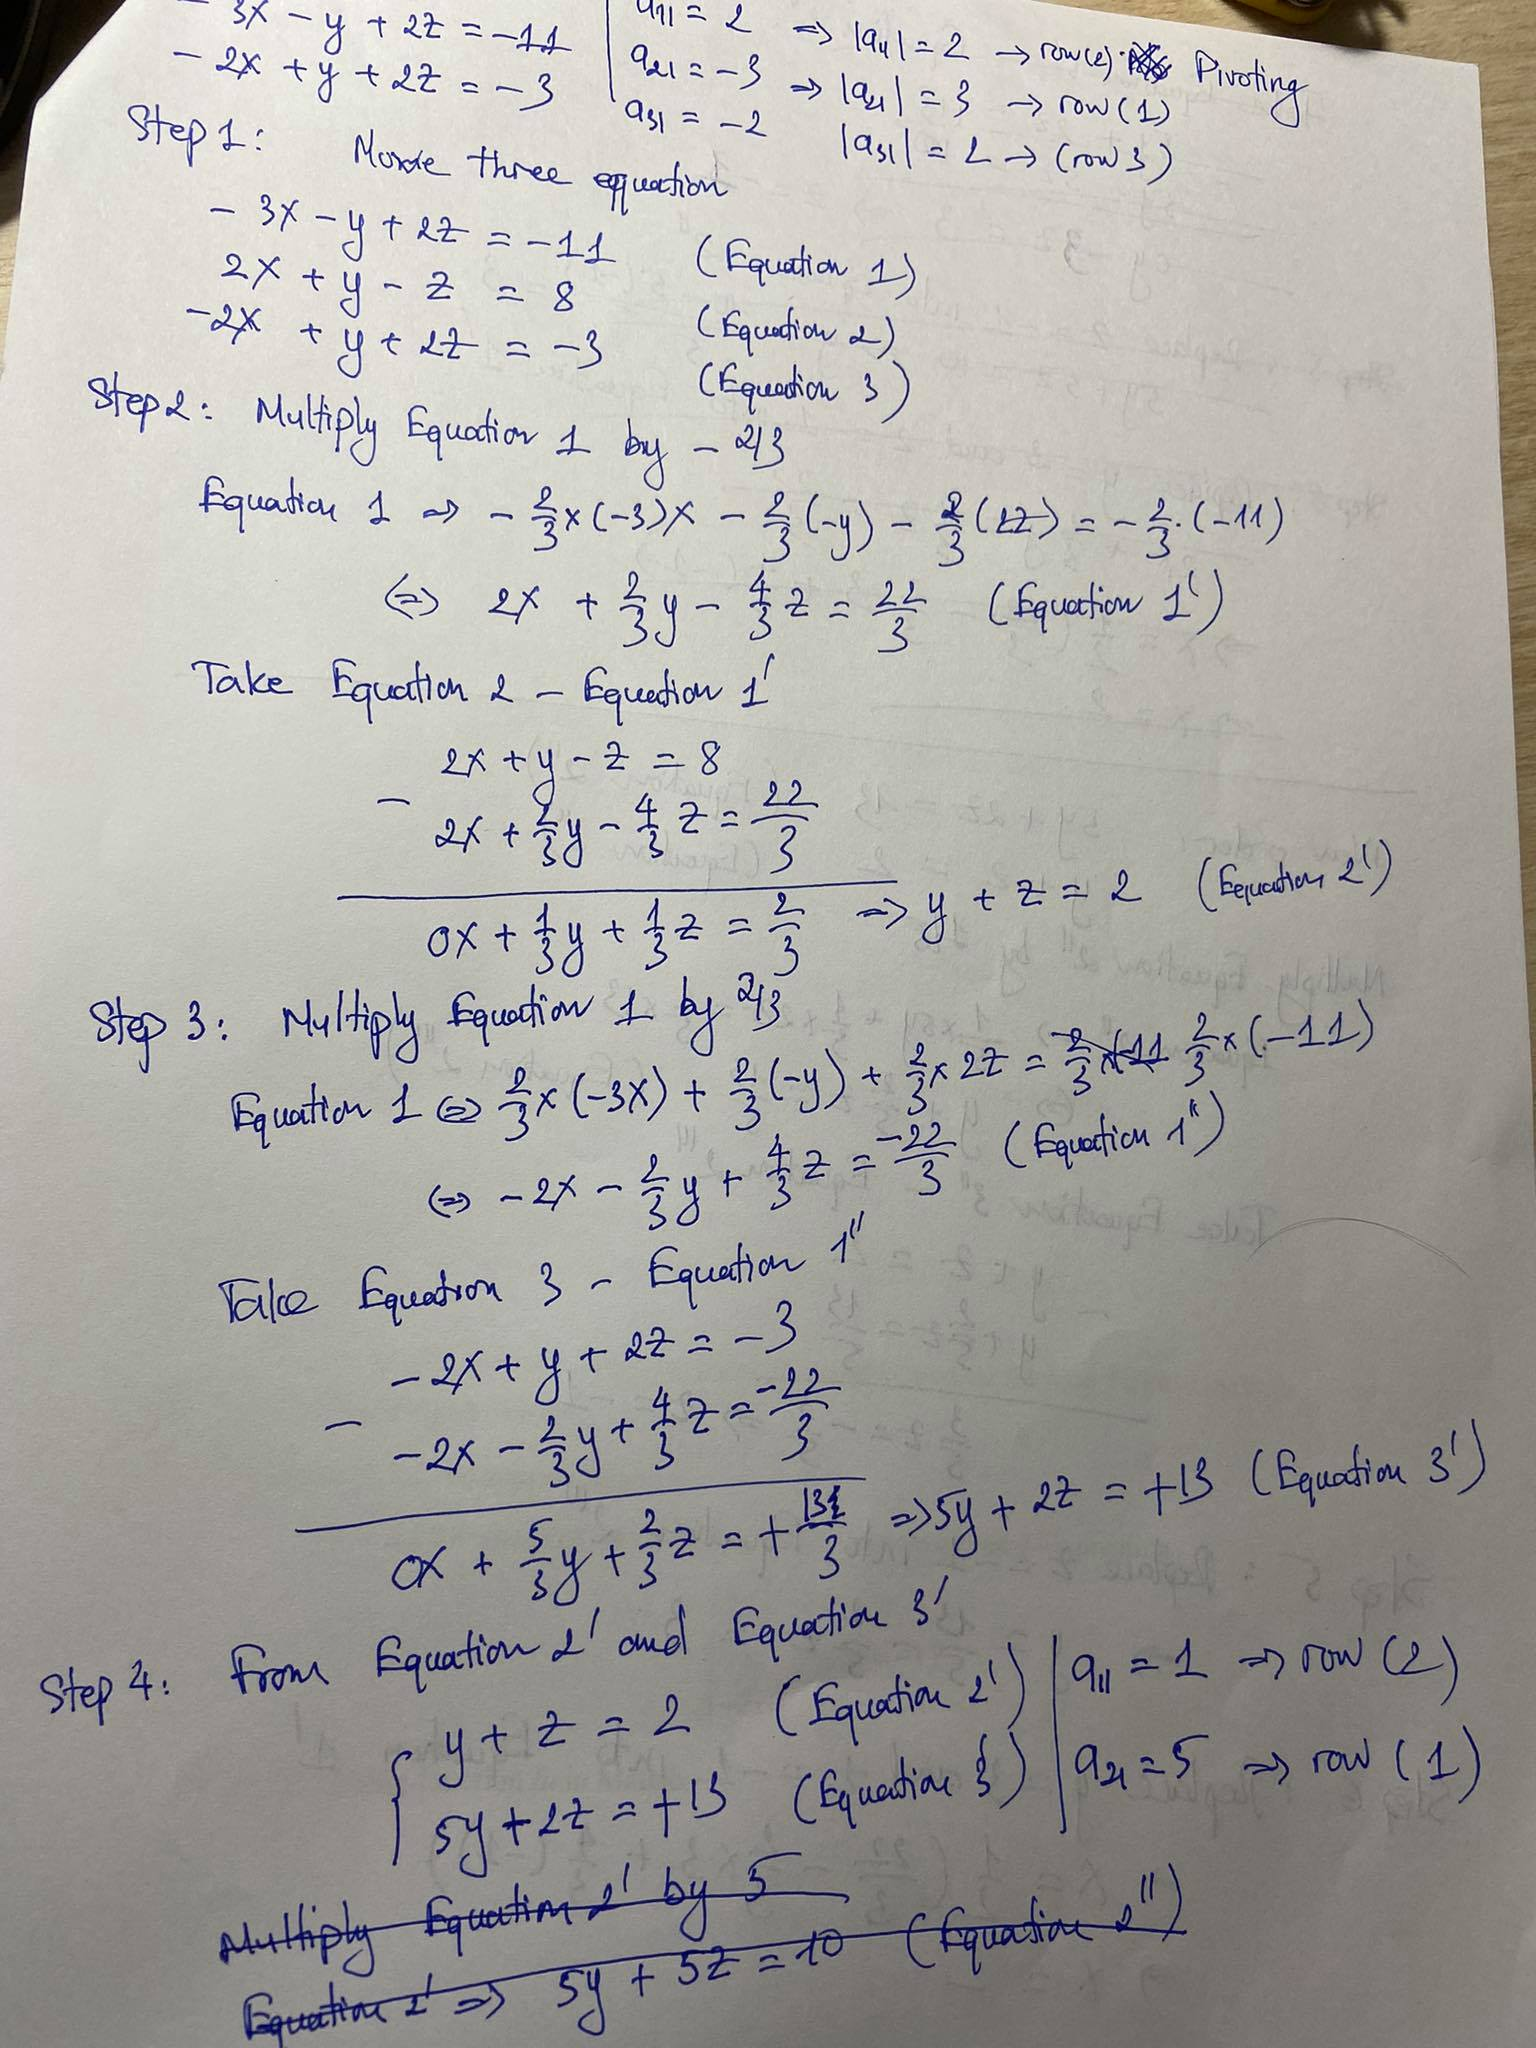 - 3x - y + 2z = -11
- 2x + y + 2z = -3
a11 = 2 => |a11| = 2 -> row(2) Pivoting
a21 = -3 => |a21| = 3 -> row(1)
a31 = -2 |a31| = 2 -> (row 3)
Step 1: Move three equation
- 3x - y + 2z = -11 (Equation 1)
2x + y - z = 8 (Equation 2)
-2x + y + 2z = -3 (Equation 3)
Step 2: Multiply Equation 1 by - 2/3
Equation 1 => - 2/3 x (-3)x - 2/3 (-y) - 2/3 (2z) = - 2/3 . (-11)
<=> 2x + 2/3 y - 4/3 z = 22/3 (Equation 1')
Take Equation 2 - Equation 1'
2x + y - z = 8
- 2x + 2/3 y - 4/3 z = 22/3
0x + 1/3 y + 1/3 z = 2/3 => y + z = 2 (Equation 2')
Step 3: Multiply Equation 1 by 2/3
Equation 1 <=> 2/3 x (-3x) + 2/3 (-y) + 2/3 x 2z = -2/3 x (-11 2/3 x (-11)
<=> -2x - 2/3 y + 4/3 z = -22/3 (Equation 1'')
Take Equation 3 - Equation 1''
-2x + y + 2z = -3
- -2x - 2/3 y + 4/3 z = -22/3
0x + 5/3 y + 2/3 z = + 13/3 => 5y + 2z = +13 (Equation 3')
Step 4: From Equation 2' and Equation 3'
{ y + z = 2 (Equation 2') | a11 = 1 => row (2)
5y + 2z = +13 (Equation 3') | a21 = 5 => row (1)
Multiply Equation 2' by 5
Equation 2' => 5y + 5z = 10 (Equation 2'')